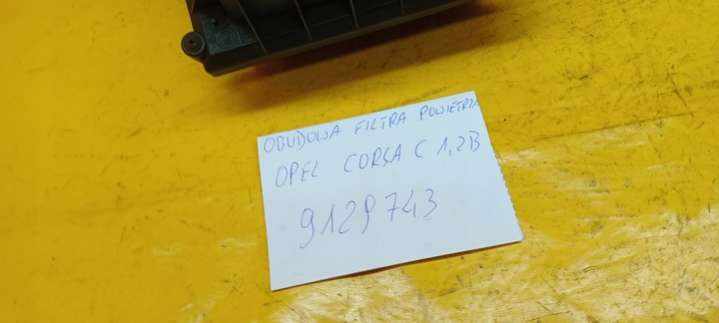 OBUDOWA FILTRA POWIETRZA
OPEL CORSA C 1,2B
9129743